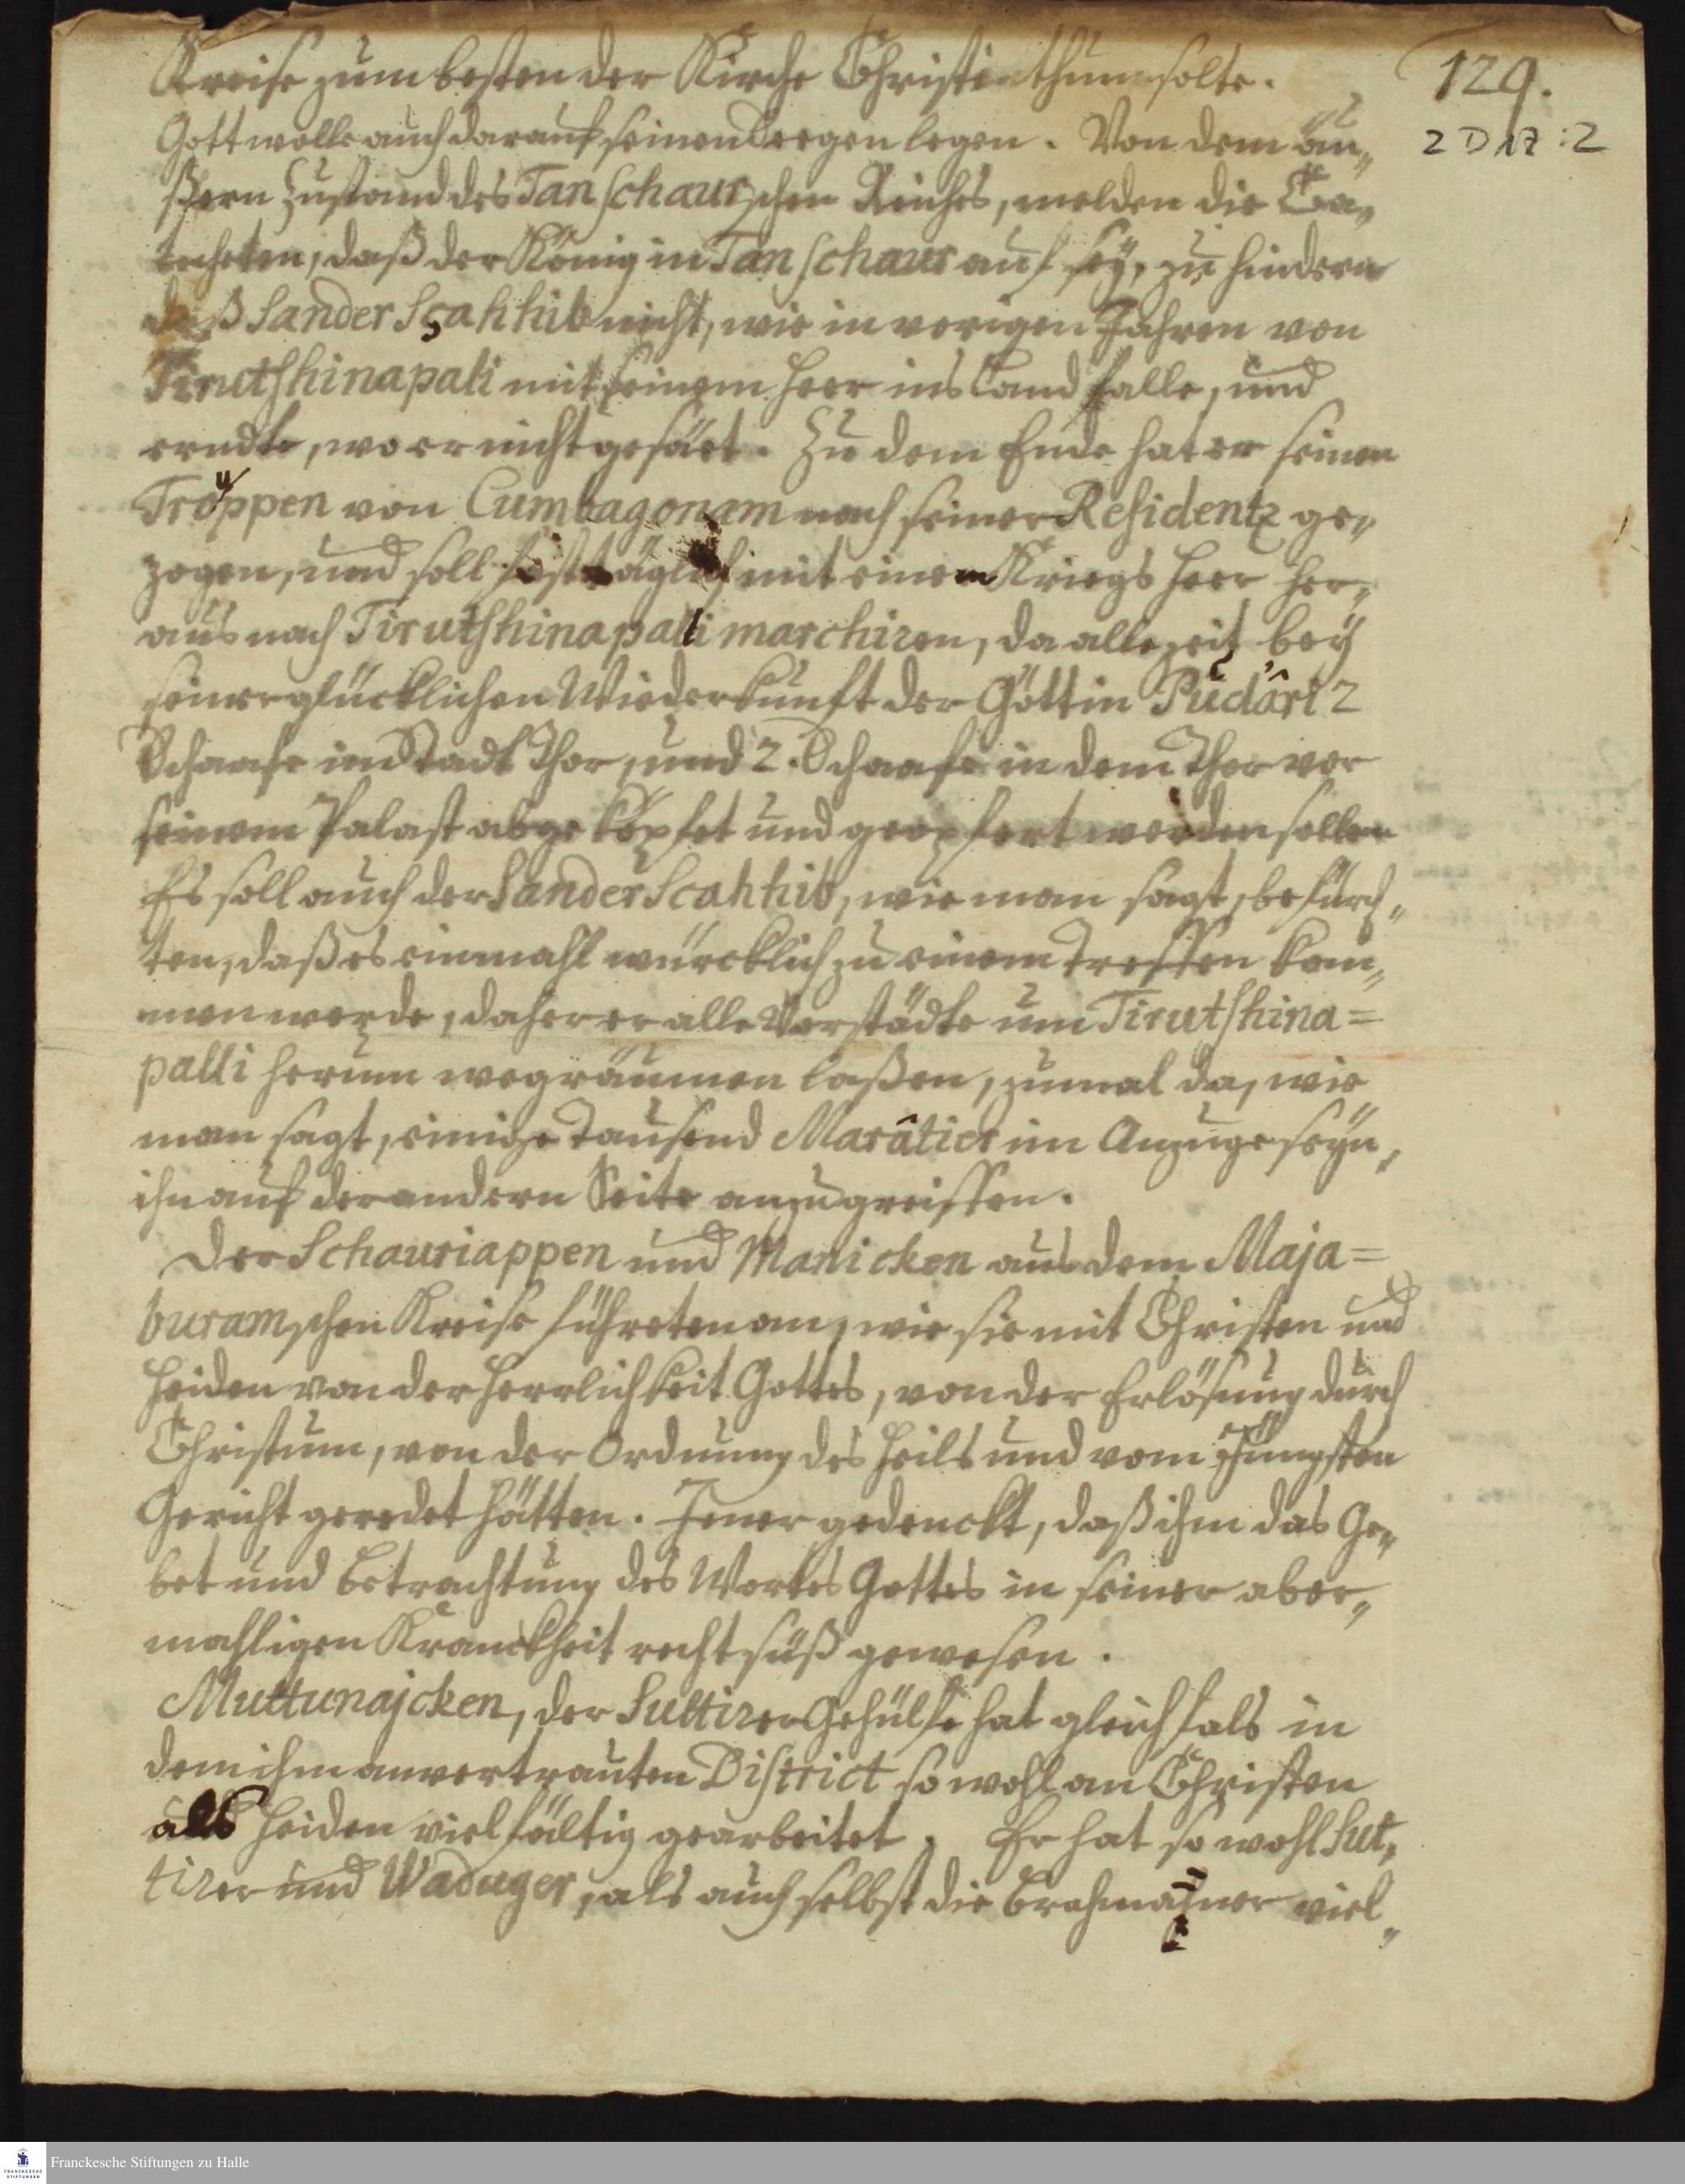 Kreise zum besten der Kirche Christi thun solte.
129.
Gott wolle auch darauf seinen Seegen legen. Von dem äu„
2 D 17 : 2
ßern Zustand des Tanschaurschen Reichs, melden die Ca„
techeten, daß der König in Tanschaur auf sey, zu hindern
daß Sander Scahhib nicht, wie in vorigen Jahren von
Tirutshinapali mit seinem Heer ins Land falle, und
erndte, wo er nicht gesäet. Zu dem Ende hat er seinen
Truppen von Cumbagonam nach seiner Residentz ge„
zogen, und soll fast täglich mit einem Kriegs Heer her„
aus nach Tirutshinapalli marchiren, da allezeit bey
seiner glücklichen Wiederkunft der Göttin Pudâri 2
Schaafe im Stadt Thor, und 2. Schaafe in dem Thor vor
seinem Palast abgeköpfet und geopfert werden sollen
Es soll auch der Sander Scahhib, wie man sagt, befürch„
ten, daß es einmahl würcklich zu einem Treffen kom„
men werde, daher er alle Vorstädte um Tirutshina=
palli herum wegräumen laßen, zumal da, wie
man sagt, einige Tausend Marâtier im Anzuge seyn,
ihn auf der andern Seite anzugreiffen.
Der Schauriappen und Manicken aus dem Maja=
buramschen Kreise führeten an, wie sie mit Christen und
Heiden von der Herrlichkeit Gottes, von der Erlösung durch
Christum, von der Ordnung des Heils und vom Jüngsten
Gericht geredet hätten. Jener gedenckt, daß ihm das Ge„
bet und Betrachtung des Wortes Gottes in seiner aber„
mahligen Kranckheit recht süß gewesen.
Muttunajcken, der Suttirer Gehülfe hat gleichfals in
dem ihm anvertrauten District so wohl an Christen
als Heiden vielfältig gearbeitet. Er hat so wohl Sut„
tirer und Waduger, als auch selbst die Brahmaner viel„
Franckesche Stiftungen zu Halle